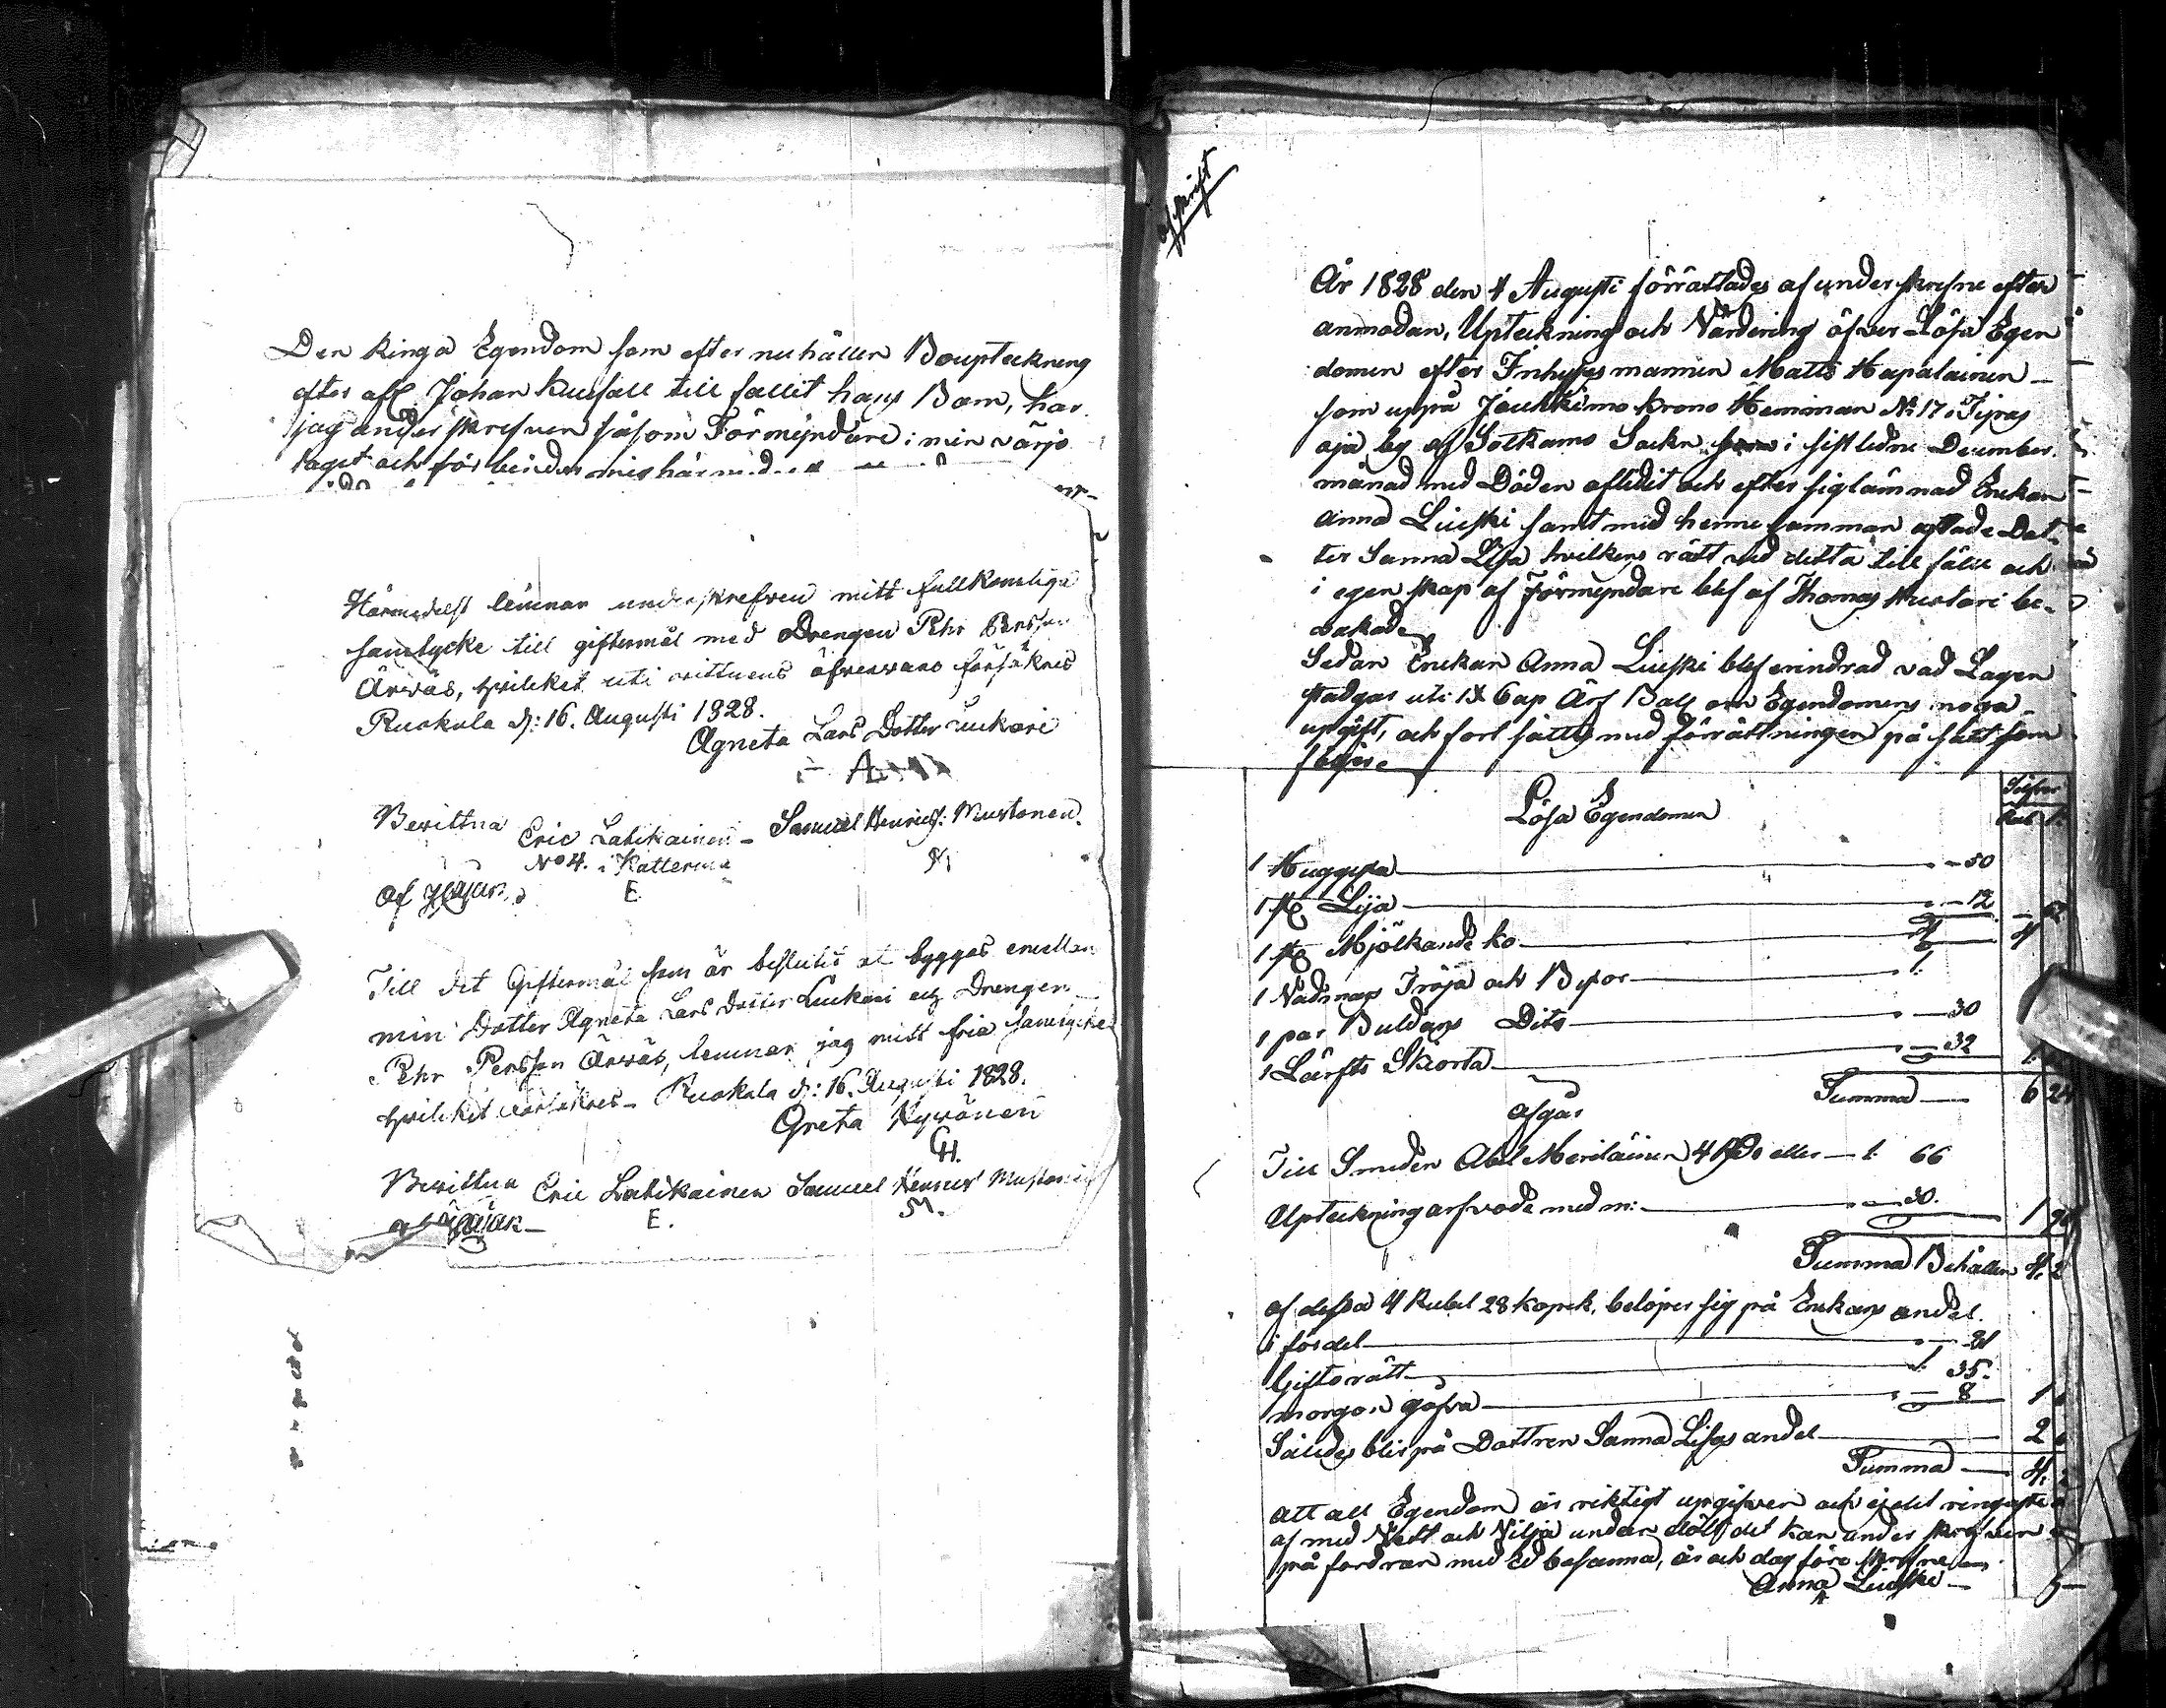 Den ringa Egendom som efter nu hållen Bouptekning
efter afl Johan Kusfall till fallit hans Barn, har
jag underskrefven såsom Förmyndare i min värjo
taget och för beder mig här med
Härmedelst lemnar underskrefven mitt fullkomliga
samtycke till giftermål med Drengen Pehr Persson
Ärväs, hvilcket uti vittnens öfvervaro försäkres
Ruokula d: 16. Augusti 1828.
Agneta Lars Dotter Leukari
A.
Bevittna
Eric Latikainen - Samuel Henrics: Mustonen.
No 4. i Katterma
E.
Till det Giftermål som är beslutit at byggas emellan
min Dotter Agneta Lars Dotter Leukari och Drengen
Pehr Persson Ärväs, lemnar jag mitt fria samtycke
hvilcket försäkres - Ruokula d: 16. Augusti 1828.
Greta Hyvönen
GH.
Bevittna Eric Latikainen Samuel Henrics Mustonen
E. M.
Afskrift
År 1828 den 4 Augusti förrättades af underskrefne efter
anmodan, Upteckning och Värdering öfver Lösa Egen
domen efter Inhyses mannen Matts Hapalainen
som uppå Jouhkimo krono Hemman No 17 i Tipas
oja by af Sotkamo Sockn i sistledne December
månad med Döden aflidit och efter sig lämnad Enckan
Anna Liuski samt med henne samman aflade Dot-
ter Sanna Lisa hvilkens rätt vid detta till fälle och
i egen skap af Förmyndare blef af Thomas Mustari be-
vakade
Sedan Enckan Anna Liuski blef erindrad vad Lagen
stadgar uti IX Cap Ärf Balk om Egendomens noga
upgift, och fort sattes med förrättningen på sätt som
följer
Lösa Egendomen
Silfver
Rub k
1 Huggyxa - 50
1 st Lija - 12
1 st Mjölkande ko 4 4
1 Vadmans Tröja och Byxor 1:
1 par Buldans Dito - 30
1 Lärfts Skiorta - 32
Summa 6 24
Afgår
Till Smeden Abel Meriläinen 4 Rd eller 1: 66
Upteckning arfvode med m: - 30. 1
Summa Behållen 4. 2
af dessa 4 Rubel 28 kopek, belöper sig på Enkans andel.
i fördel - 21
Giftorätt 1. 35.
morgon gåfva - 8 1
Således blir på Dottren Sanna Lisas andel 2
Summa 4.
Att all Egendom är riktigt upgifven och ej det ringaste
af med Vett och Vilja undandölgt det kan underskrefven
på fordran med Ed besanna, år och dag före skrefne
Anna Liuski